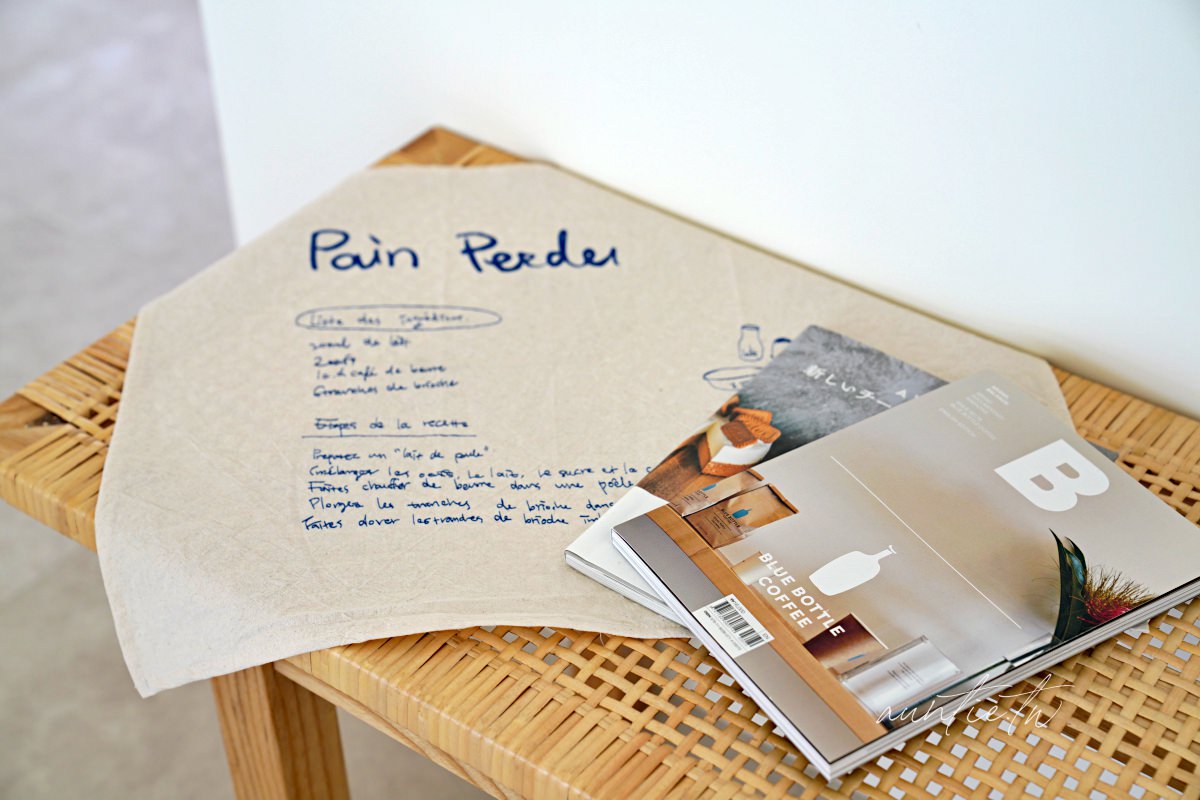 Pain Perdu
Liste des ingrédients.
de lait
1 c à café de beurre
tranches de brioche
Étapes de la recette
Preparez un "lait de poule"
Mélanger les oeufs, le lait, le sucre et la c
Faites chauffer de beurre dans une poêle
Plongez les tranches de brioche dans
Faites dorer les tranches de brioche
新しいチー
A
B
BLUE BOTTLE
COFFEE
auntie.tw